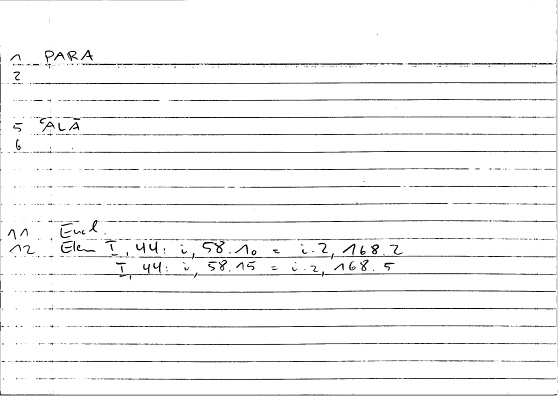 1 PARA
2
5 ʿALĀ
6
11 Eucl.
12 Elem I, 44: i, 58.10 = i.2, 168.2
I, 44: i, 58.15 = i.2, 168.5